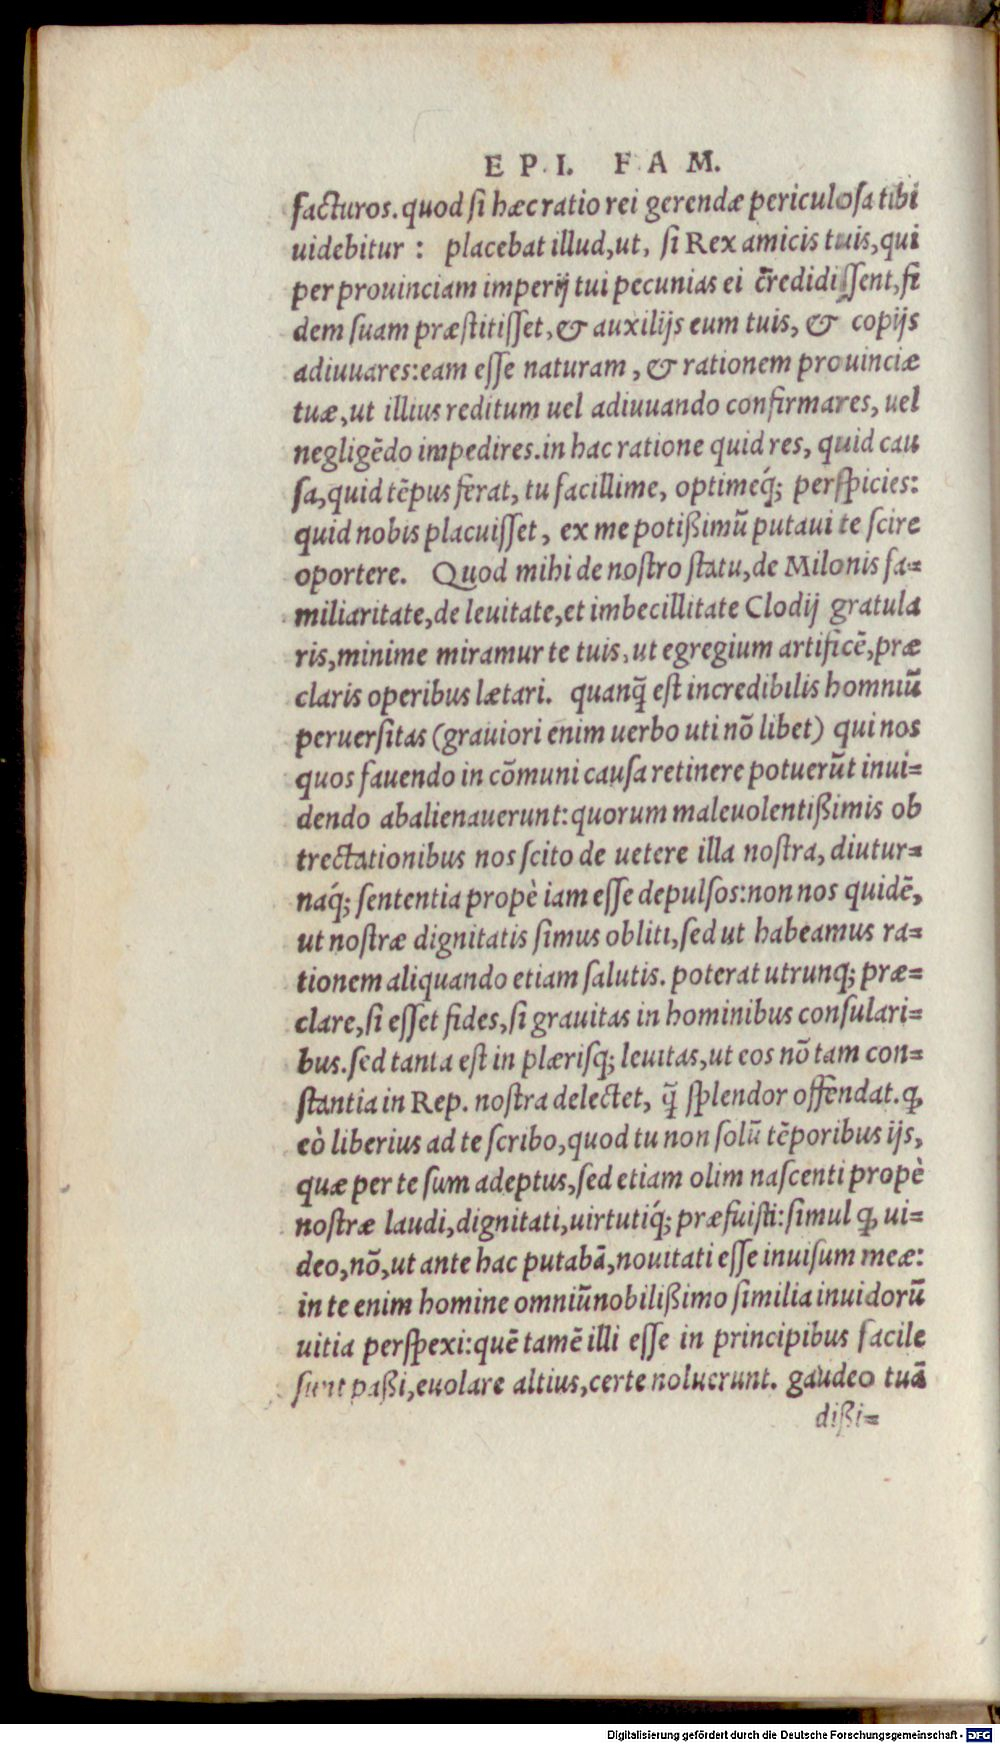 EPI. FAM.
facturos. quod si hæc ratio rei gerendæ periculosa tibi
uidebitur : placebat illud, ut, si Rex amicis tuis, qui
per prouinciam imperij tui pecunias ei credidissent, fi
dem suam præstitisset, & auxilijs eum tuis, & copijs
adiuuares: eam esse naturam, & rationem prouinciæ
tuæ, ut illius reditum uel adiuuando confirmares, uel
negligẽdo impedires. in hac ratione quid res, quid cau
sa, quid tẽpus ferat, tu facillime, optimeq́; perspicies:
quid nobis placuisset, ex me potißimũ putaui te scire
oportere. Quod mihi de nostro statu, de Milonis fa=
miliaritate, de leuitate, et imbecillitate Clodij gratula
ris, minime miramur te tuis, ut egregium artificẽ, præ
claris operibus lætari. quanq̃ est incredibilis homniũ
peruersitas (grauiori enim uerbo uti nõ libet) qui nos
quos fauendo in cõmuni causa retinere potuerũt inui=
dendo abalienauerunt: quorum maleuolentißimis ob
trectationibus nos scito de uetere illa nostra, diutur=
naq́; sententia propè iam esse depulsos: non nos quidẽ,
ut nostræ dignitatis simus obliti, sed ut habeamus ra=
tionem aliquando etiam salutis. poterat utrunq; præ=
clare, si esset fides, si grauitas in hominibus consulari=
bus. sed tanta est in plærisq; leuitas, ut eos nõ tam con=
stantia in Rep. nostra delectet, q̃ splendor offendat. ꝙ
eò liberius ad te scribo, quod tu non solũ tẽporibus ijs,
quæ per te sum adeptus, sed etiam olim nascenti propè
nostræ laudi, dignitati, uirtutiq́; præfuisti: simul ꝙ ui=
deo, nõ, ut ante hac putabã, nouitati esse inuisum meæ:
in te enim homine omniũ nobilißimo similia inuidorũ
uitia perspexi: quẽ tamẽ illi esse in principibus facile
sunt paßi, euolare altius, certe noluerunt. gaudeo tuã
dißi=
Digitalisierung gefördert durch die Deutsche Forschungsgemeinschaft - DFG